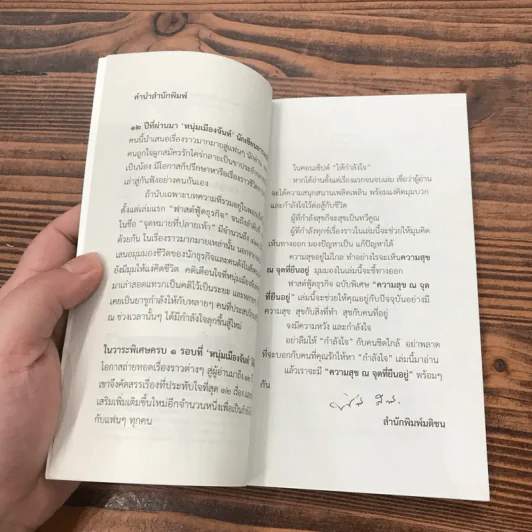 คำนำสำนักพิมพ์
๑๒ ปีที่ผ่านมา 'หนุ่มเมืองจันท์' นักเขียน
คนนี้นำเสนอเรื่องราวมากมายสู่แฟนๆ
คนถูกใจผูกสมัครรักใคร่กลายเป็น
เป็นน้อง มีโอกาสก็ปรึกษาหารือเรื่องราวชีวิต
เล่าสู่กันฟังอย่างคนกันเอง
ถ้านับเฉพาะบทความที่รวมอยู่ใน
ตั้งแต่เล่มแรก "ฟาสต์ฟู้ดธุรกิจ" จนถึงลำดับที่
ในชื่อ "จุดหมายที่ปลายเท้า" มีจำนวนถึง
ด้วยกัน ในเรื่องราวมากมายเหล่านั้น นอกจาก
เสนอมุมมองชีวิตของนักธุรกิจและคนดัง
ยังมีมุมให้แง่คิดชีวิต คติเตือนใจที่หนุ่มเมือง
มาเล่าสอดแทรกเป็นคติไว้เป็นระยะ และหลายๆ
เคยเป็นยาชูกำลังให้กับหลายๆ คนที่ประสบ
ณ ช่วงเวลานั้นๆ ได้มีกำลังใจลุกขึ้นสู้ใหม่
ในวาระพิเศษครบ ๑ รอบที่ 'หนุ่มเมืองจันท์'
โอกาสถ่ายทอดเรื่องราวต่างๆ สู่ผู้อ่านมาถึง ๑๒
เขาจึงคัดสรรเรื่องที่ประทับใจที่สุด ๑๒ เรื่อง และ
เสริมเพิ่มเติมขึ้นใหม่อีกจำนวนหนึ่งเพื่อเป็นกำลังใจ
กับแฟนๆ ทุกคน
ในคอนเซ็ปต์ "ให้กำลังใจ"
หากได้อ่านตั้งแต่เรื่องแรกจนจบเล่ม เชื่อว่าผู้อ่าน
จะได้ความสนุกสนานเพลิดเพลิน พร้อมแง่คิดมุมบวก
และกำลังใจไว้ต่อสู้กับชีวิต
ผู้ที่กำลังสุขก็จะสุขเป็นทวีคูณ
ผู้ที่กำลังทุกข์เรื่องราวในเล่มนี้จะช่วยให้มุมคิด
เห็นทางออก มองปัญหาเป็น แก้ปัญหาได้
ความสุขอยู่ไม่ไกล ทำอย่างไรจะเห็นความสุข
ณ จุดที่ยืนอยู่ มุมมองในเล่มนี้จะชี้ทางออก
ฟาสต์ฟู้ดธุรกิจ ฉบับพิเศษ "ความสุข ณ จุด
ที่ยืนอยู่" เล่มนี้จะช่วยให้คุณอยู่กับปัจจุบันอย่างมี
ความสุข สุขกับสิ่งที่ทำ สุขกับคนที่อยู่
จงมีความหวัง และกำลังใจ
อย่าลืมให้ "กำลังใจ" กับคนชิดใกล้ อย่าพลาด
ที่จะบอกกับคนที่คุณรักให้หา "กำลังใจ" เล่มนี้มาอ่าน
แล้วเราจะมี "ความสุข ณ จุดที่ยืนอยู่" พร้อมๆ
กัน
สำนักพิมพ์มติชน